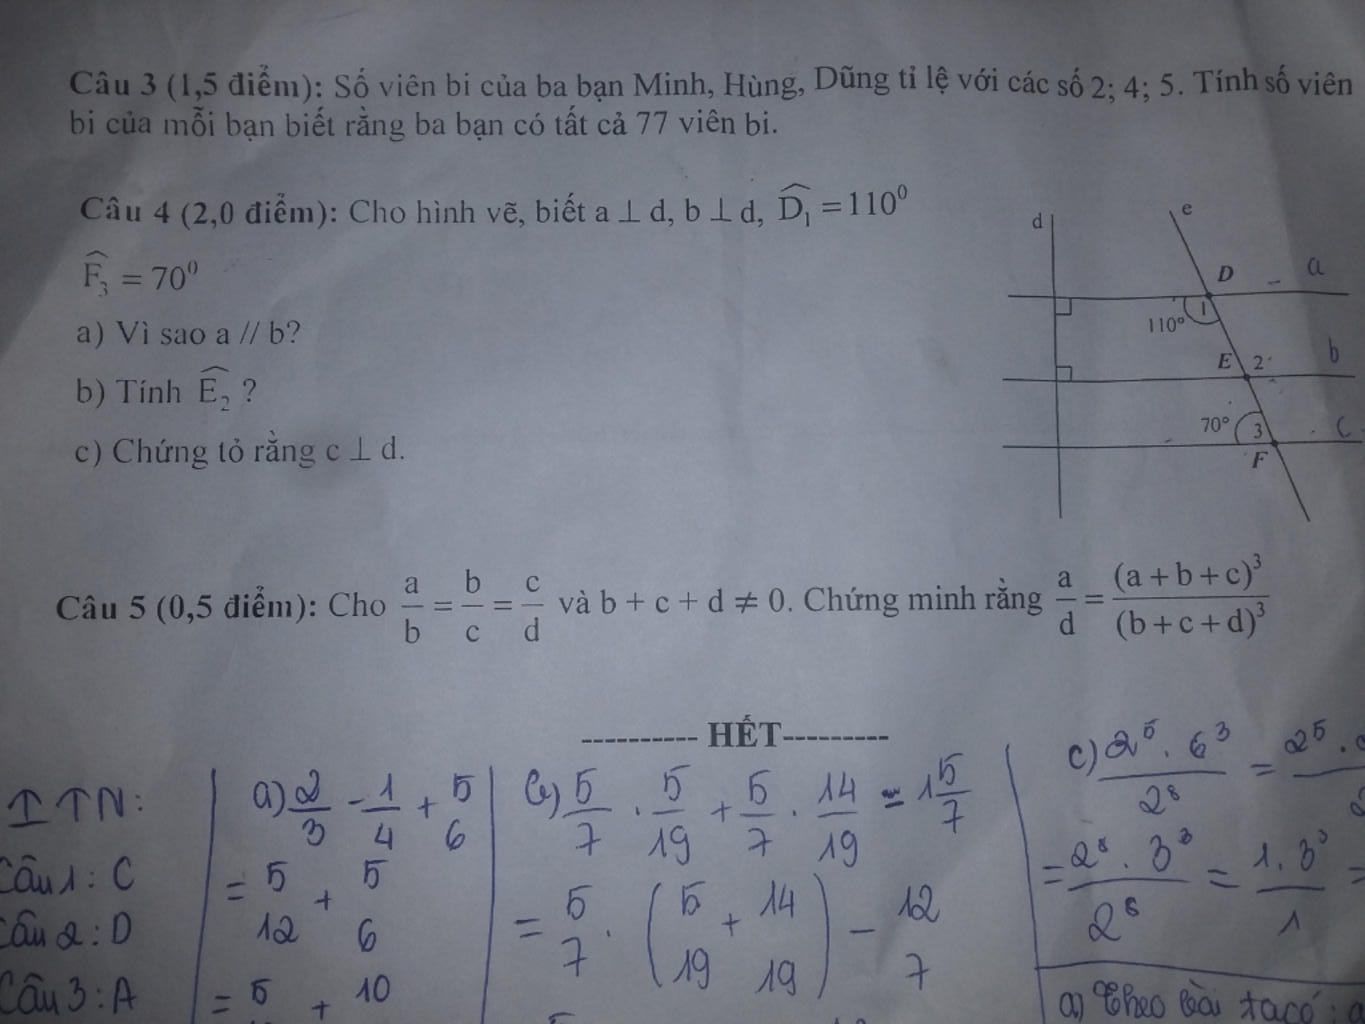 Câu 3 (1,5 điểm): Số viên bi của ba bạn Minh, Hùng, Dũng tỉ lệ với các số 2; 4; 5. Tính số viên
bi của mỗi bạn biết rằng ba bạn có tất cả 77 viên bi.
Câu 4 (2,0 điểm): Cho hình vẽ, biết a ⊥ d, b ⊥ d, D̂₁ = 110⁰
F̂₃ = 70⁰
a) Vì sao a // b?
b) Tính Ê₂ ?
c) Chứng tỏ rằng c ⊥ d.
d
e
D
a
1
110°
E
2
b
70°
3
c
F
Câu 5 (0,5 điểm): Cho a/b = b/c = c/d và b + c + d ≠ 0. Chứng minh rằng a/d = (a + b + c)³/(b + c + d)³
---------- HẾT---------
I TN:
Câu 1: C
Câu 2: D
Câu 3: A
a) 2/3 - 1/4 + 5/6
= 5/12 + 5/6
= 5 + 10
b) 5/7 . 5/19 + 5/7 . 14/19 - 1 5/7
= 5/7 . (5/19 + 14/19) - 12/7
c) 2⁵ . 6³/2⁸ = 2⁵ .
= 2⁸ . 3³/2⁸ = 1 . 3³/1 =
a) Theo bài ta có :